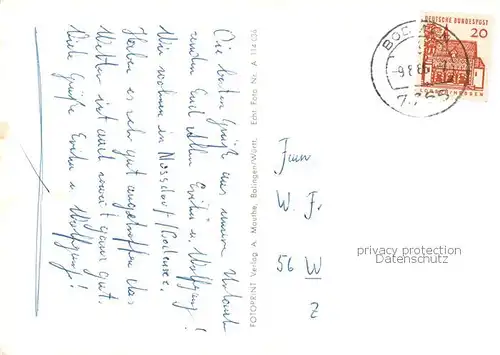 Die besten Grüße aus unserem Urlaub
senden Euch allen Erika u. Wolfgang!
Wir wohnen in Nussdorf/Bodensee.
Haben es sehr gut angetroffen. Das
Wetter ist auch soweit ganz gut.
Viele Grüße Erika u. Wolfgang!
FOTOPRINT Verlag A. Musche, Balingen/Württ. Echt Foto Nr. A
DEUTSCHE BUNDESPOST
20
LORSCH/HESSEN
W. F.
56 W
2
privacy protection
Datenschutz